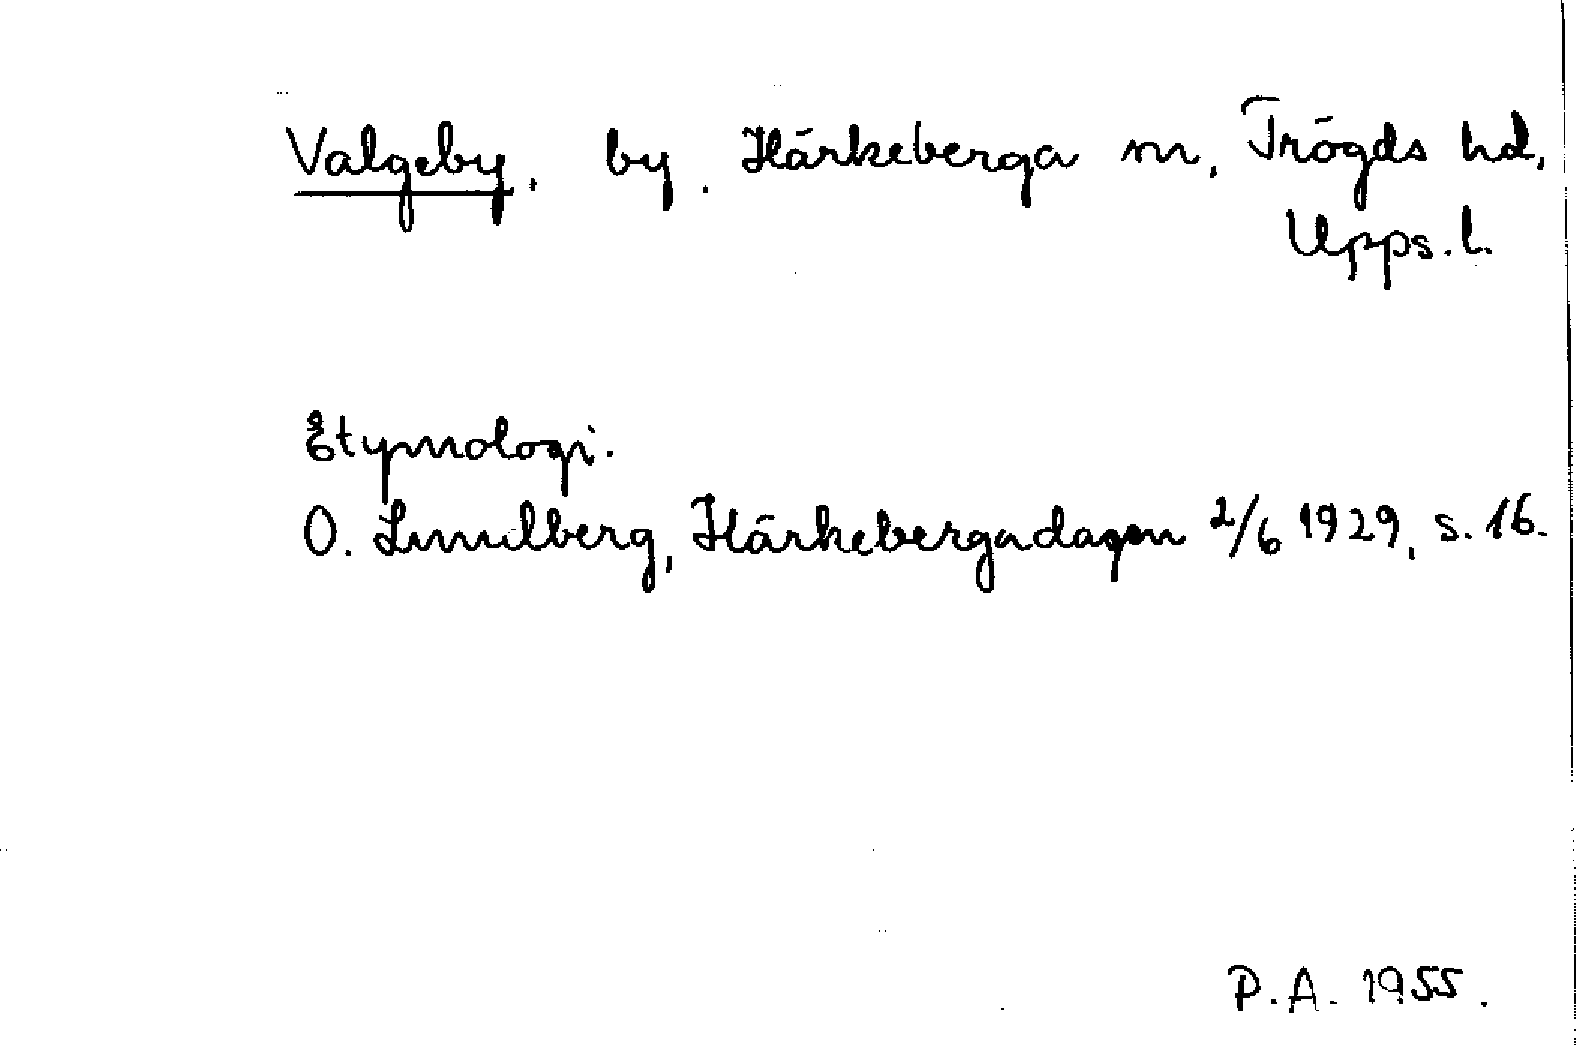 Valgeby, by. Härkeberga sn, Trögds hd,
Upps. l.
Etymologi.
O. Lundberg, Härkebergadagen 2/6 1929, s. 16.
P.A. 1955.